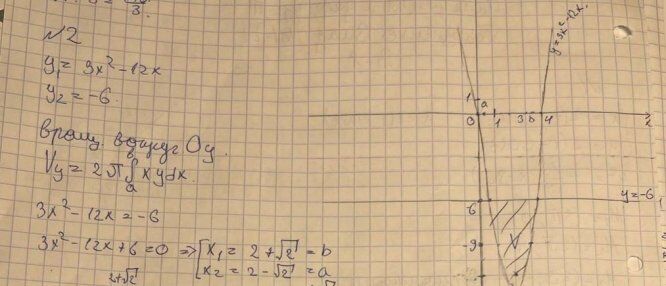 3.
№2
y₁ = 3x² - 12x
y₂ = -6.
вращ. вокруг Oy.
Vy = 2π∫ₐᵇ xydx.
3x² - 12x = -6
3x² - 12x + 6 = 0 => [x₁ = 2 + √2 = b
x₂ = 2 - √2 = a
2+√2
y = 3x² - 12x.
1
a
0 1 3 b 4 x
y = -6
6
-9
V